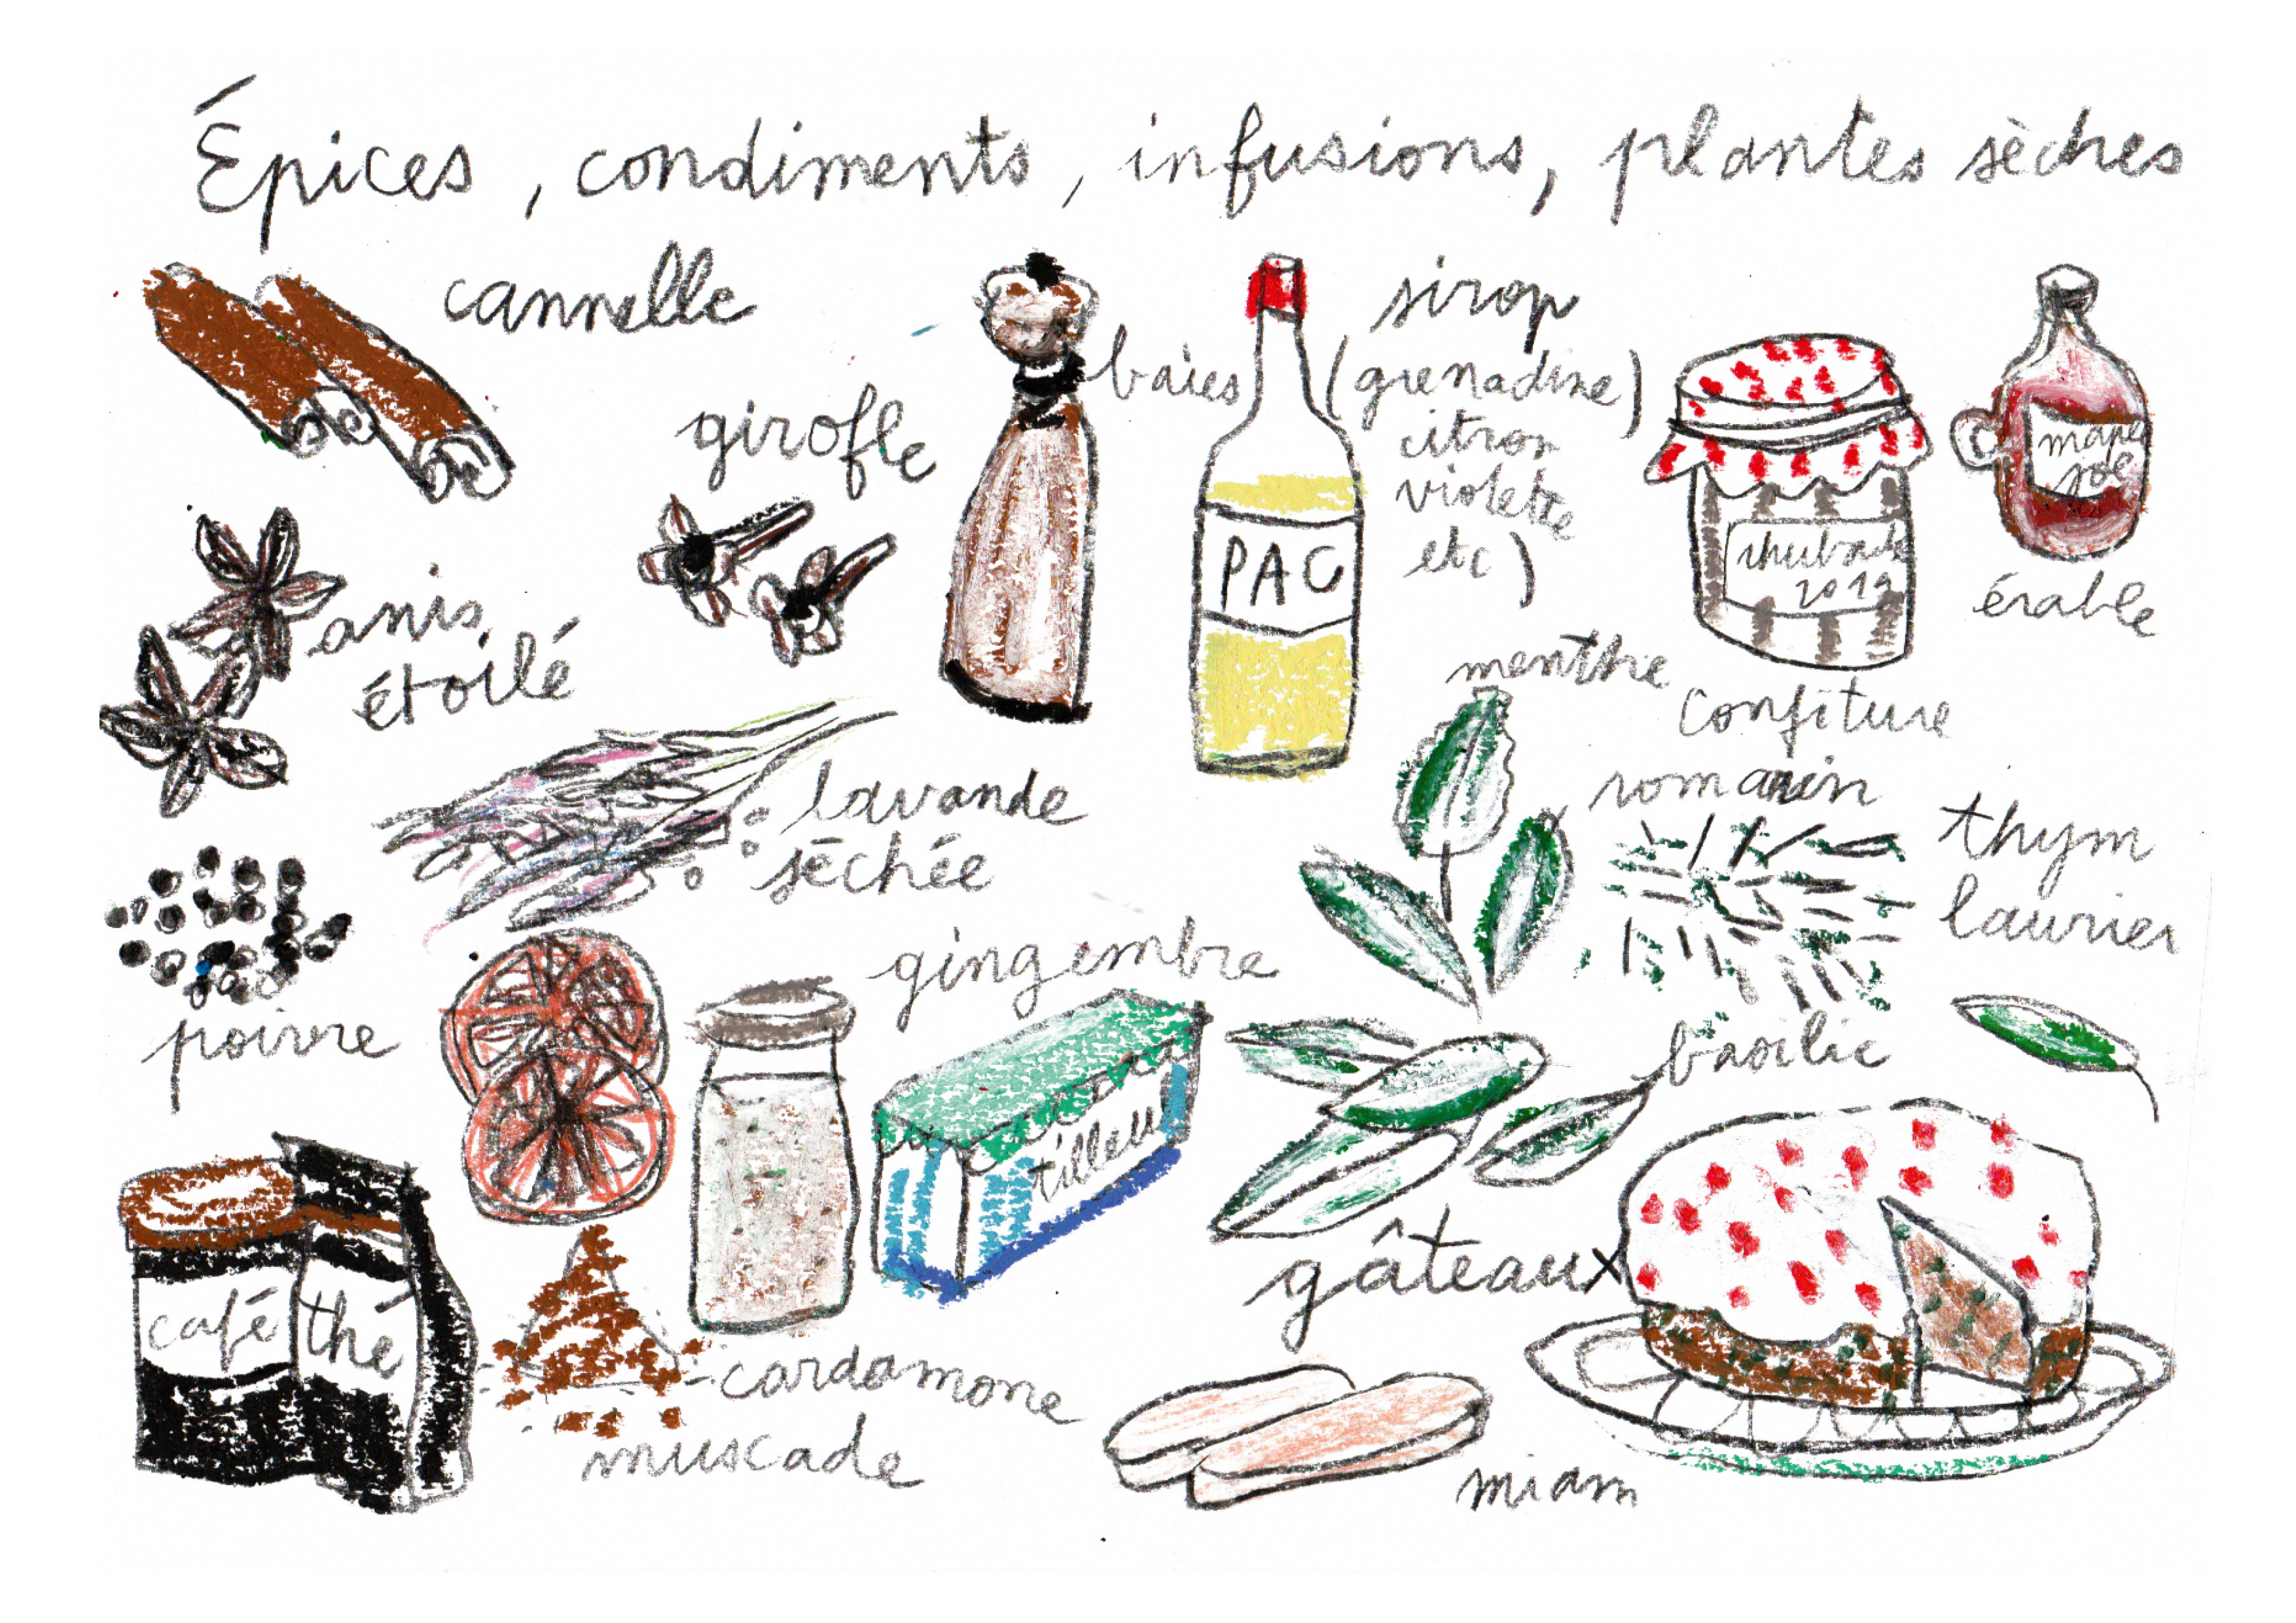 Épices, condiments, infusions, plantes sèches
cannelle
girofle
baies
sirop
(grenadine)
citron
violette
etc)
PAC
rhubarbe
2019
confiture
érable
anis
étoilé
lavande
séchée
menthe
romarin
thym
laurier
poivre
gingembre
tilleul
basilic
café
thé
cardamone
muscade
gâteaux
miam